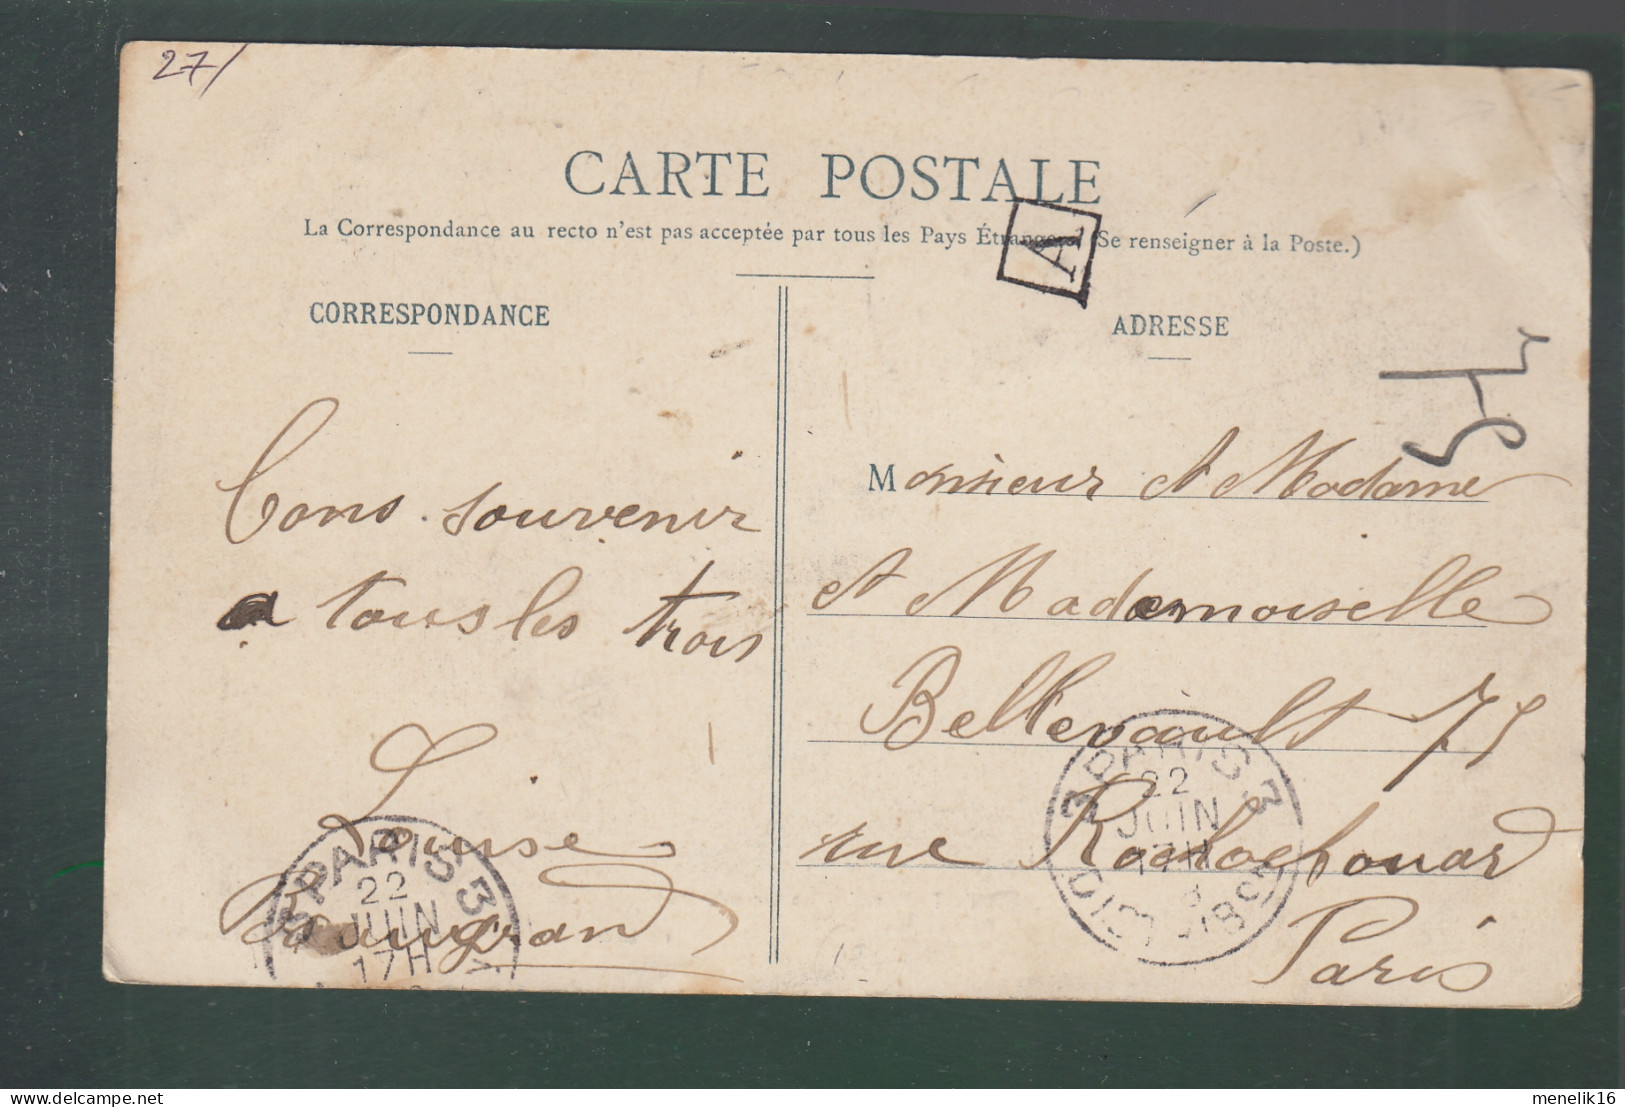 27/
CARTE POSTALE
La Correspondance au recto n'est pas acceptée par tous les Pays Étrangers (Se renseigner à la Poste.)
A
CORRESPONDANCE
Bons souvenir
a tous les trois
Louise
3 PARIS 3
22
JUIN
17H
ADRESSE
Monsieur et Madame
et Mademoiselle
Bellevault 75
rue Rochechouard
Paris
3 PARIS 3
22
JUIN
17H
menelik16